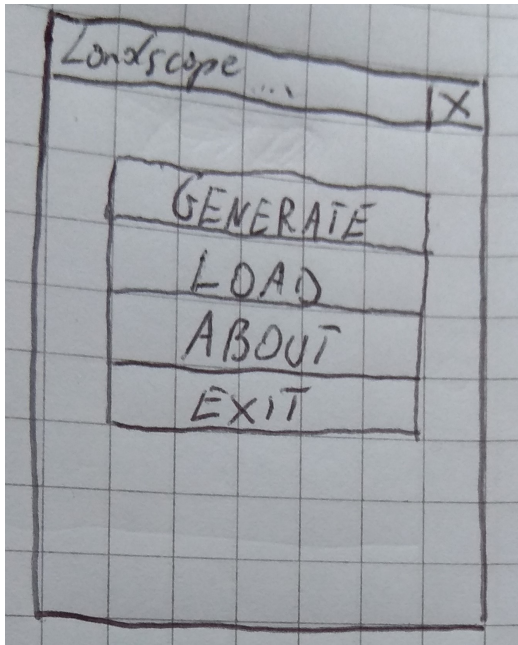 Landscape ...
X
GENERATE
LOAD
ABOUT
EXIT